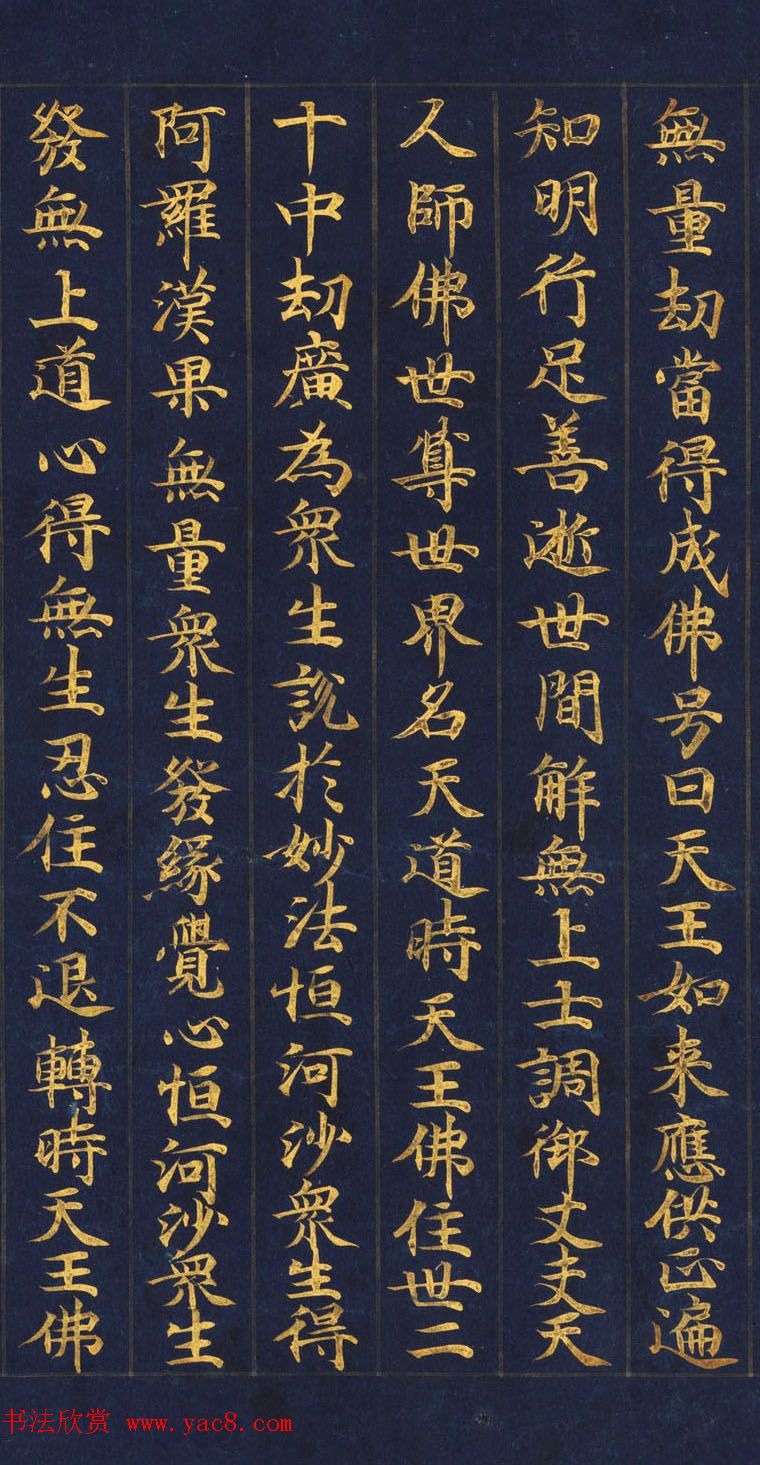 無量劫當得成佛号曰天王如来應供正遍
知明行足善逝世間解無上士調御丈夫天
人師佛世尊世界名天道時天王佛住世二
十中劫廣為衆生説於妙法恒河沙衆生得
阿羅漢果無量衆生發緣覺心恒河沙衆生
發無上道心得無生忍住不退轉時天王佛
书法欣赏 www.yac8.com